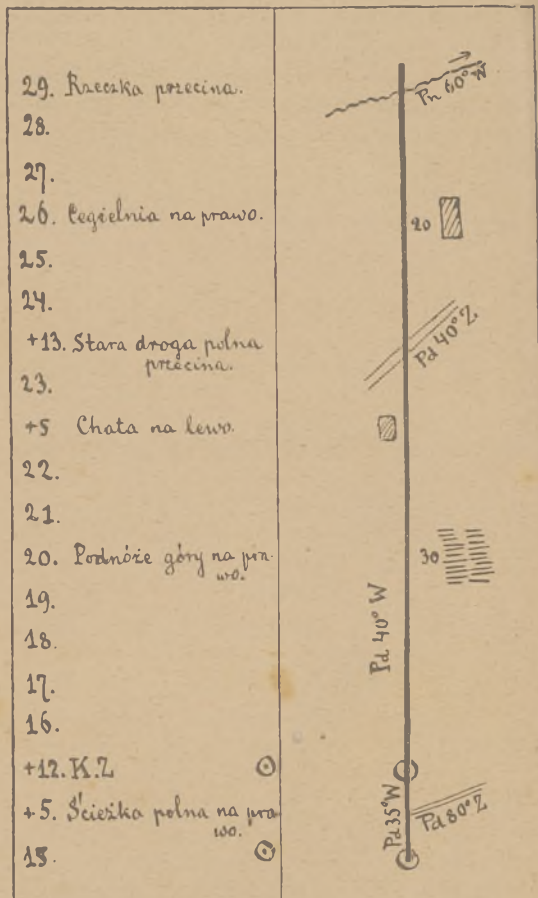 29. Rzeczka przecina.
28.
27.
26. Cegielnia na prawo.
25.
24.
+13. Stara droga polna
przecina.
23.
+5 Chata na lewo.
22.
21.
20. Podnóże góry na pra-
wo.
19.
18.
17.
16.
+12. K.Z
+5. Ścieżka polna na pra
wo.
15.
Pn 60° W
20
Pd 40° Z
30
Pd 40° W
Pd 35° W
Pd 80° Z